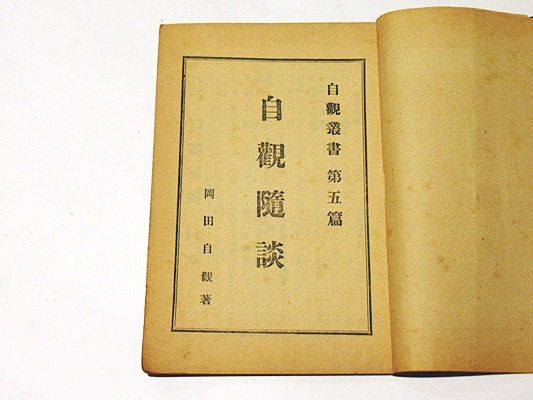 自觀叢書 第五篇
自觀隨談
岡田自觀著